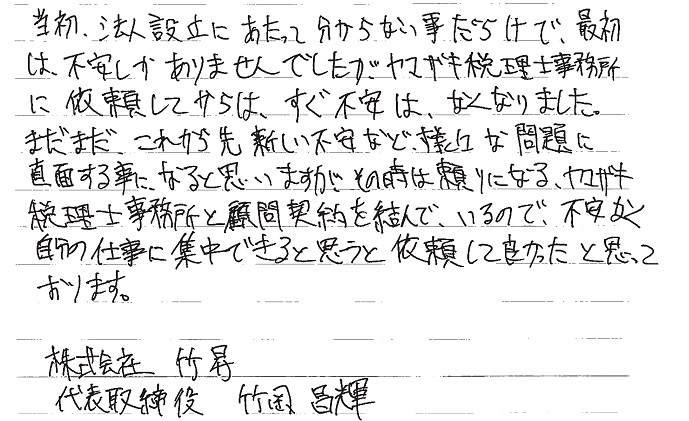 当初、法人設立にあたって分からない事だらけで、最初
は、不安しかありませんでしたが、ヤマガキ税理士事務所
に依頼してからは、すぐ不安は、なくなりました。
まだまだ、これから先新しい不安など、様々な問題に
直面する事に、なると思いますが、その時は頼りになる、ヤマガキ
税理士事務所と顧問契約を結んで、いるので、不安なく
自分の仕事に集中できると思うと依頼して良かったと思って
おります。
株式会社 竹昇
代表取締役 竹岡 昌輝